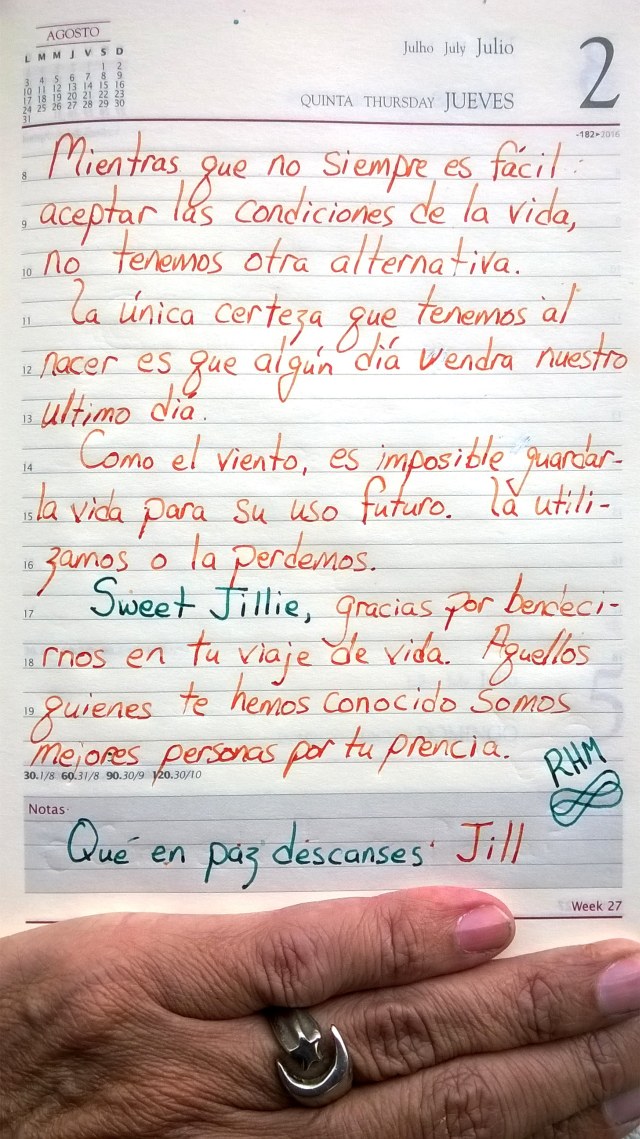 AGOSTO
L M M J V S D
1 2
3 4 5 6 7 8 9
10 11 12 13 14 15 16
17 18 19 20 21 22 23
24 25 26 27 28 29 30
31
Julho July Julio
2
QUINTA THURSDAY JUEVES
-182▸2016
8 Mientras que no siempre es fácil
9 aceptar las condiciones de la vida,
10 no tenemos otra alternativa.
11 La única certeza que tenemos al
12 nacer es que algún día vendra nuestro
13 ultimo día.
14 Como el viento, es imposible guardar-
15 la vida para su uso futuro. La utili-
16 zamos o la perdemos.
17 Sweet Jillie, gracias por bendeci-
18 rnos en tu viaje de vida. Aquellos
19 quienes te hemos conocido somos
mejores personas por tu prencia.
30.1/8 60.31/8 90.30/9 120.30/10
RHM
Notas
Que en paz descanses Jill
Week 27